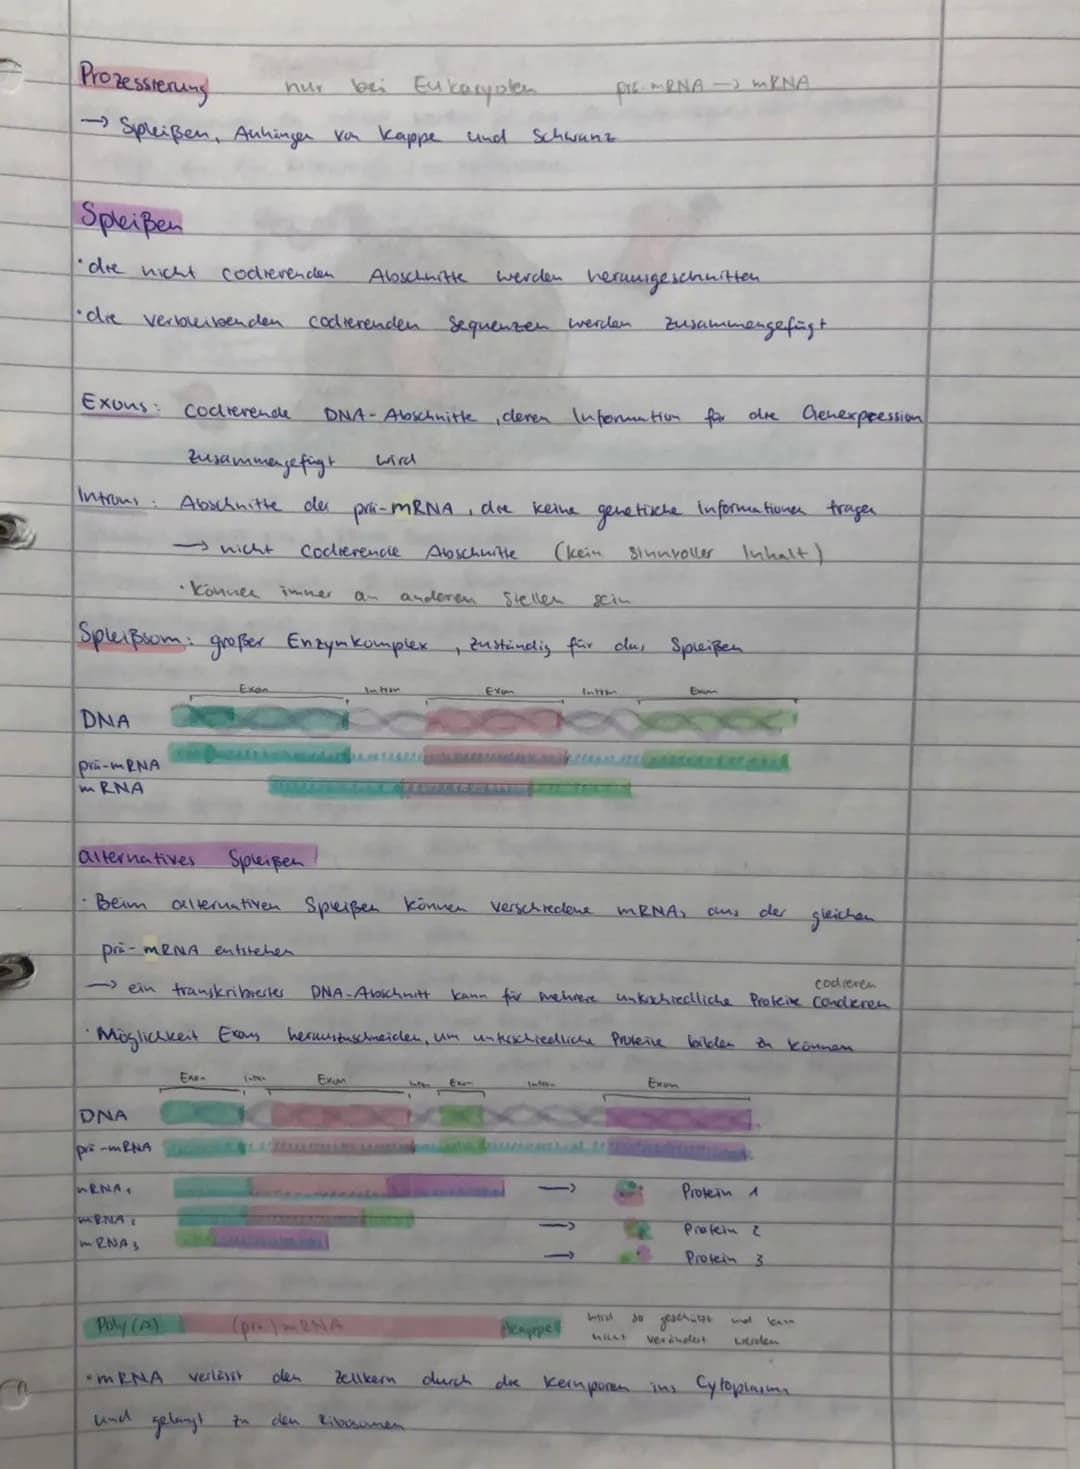 Prozessierung nur bei Eukaryoten prä-mRNA → mRNA
→ Spleißen, Anhängen von Kappe und Schwanz
Spleißen
· die nicht codierenden Abschnitte werden herausgeschnitten
· die verbleibenden codierenden Sequenzen werden zusammengefügt
Exons: codierende DNA-Abschnitte, deren Information für die Genexpression
zusammengefügt wird
Introns: Abschnitte der prä-mRNA, die keine genetische Informationen tragen
→ nicht codierende Abschnitte (kein sinnvoller Inhalt)
· können immer an anderen Stellen sein
Spleißsom: großer Enzymkomplex, zuständig für das Spleißen
Exon Intron Exon Intron Exon
DNA
prä-mRNA
mRNA
alternatives Spleißen
· Beim alternativen Spleißen können verschiedene mRNAs aus der gleichen
prä-mRNA entstehen
codieren
→ ein transkribiertes DNA-Abschnitt kann für mehrere unterschiedliche Proteine condieren
· Möglichkeit Exons herauszuschneiden, um unterschiedliche Proteine bilden zu können
Exon Intron Exon Intron Exon Intron Exon
DNA
prä-mRNA
mRNA1 → Protein 1
mRNA2 → Protein 2
mRNA3 → Protein 3
Poly(A) (prä)mRNA Kappe wird so geschützt und kann
nicht verändert werden
· mRNA verlässt den Zellkern durch die Kernporen ins Cytoplasma
und gelangt zu den Ribosomen